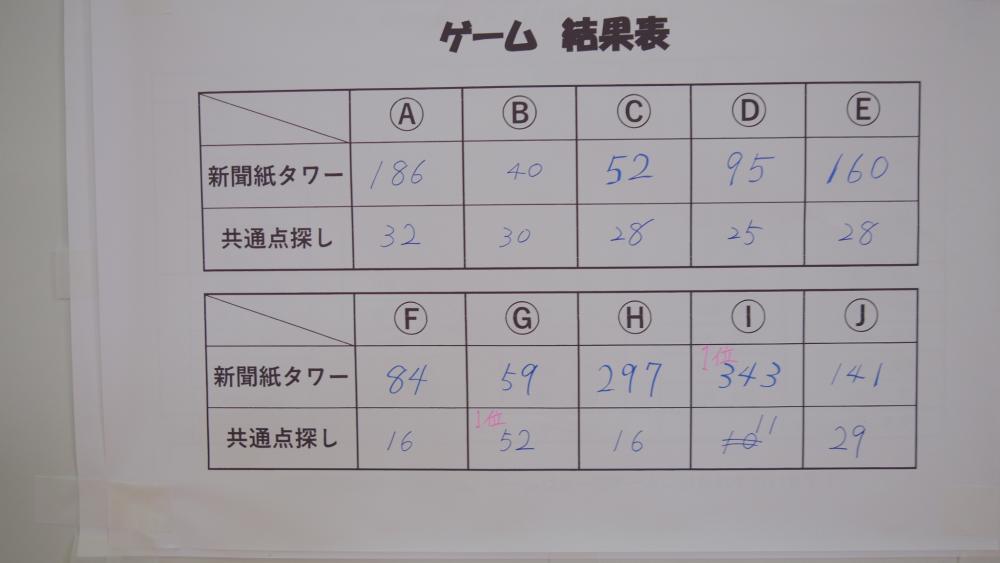 ゲーム 結果表
Ⓐ Ⓑ Ⓒ Ⓓ Ⓔ
新聞紙タワー 186 40 52 95 160
共通点探し 32 30 28 25 28
Ⓕ Ⓖ Ⓗ Ⓘ Ⓙ
新聞紙タワー 84 59 297 1位 343 141
共通点探し 16 1位 52 16 10 11 29